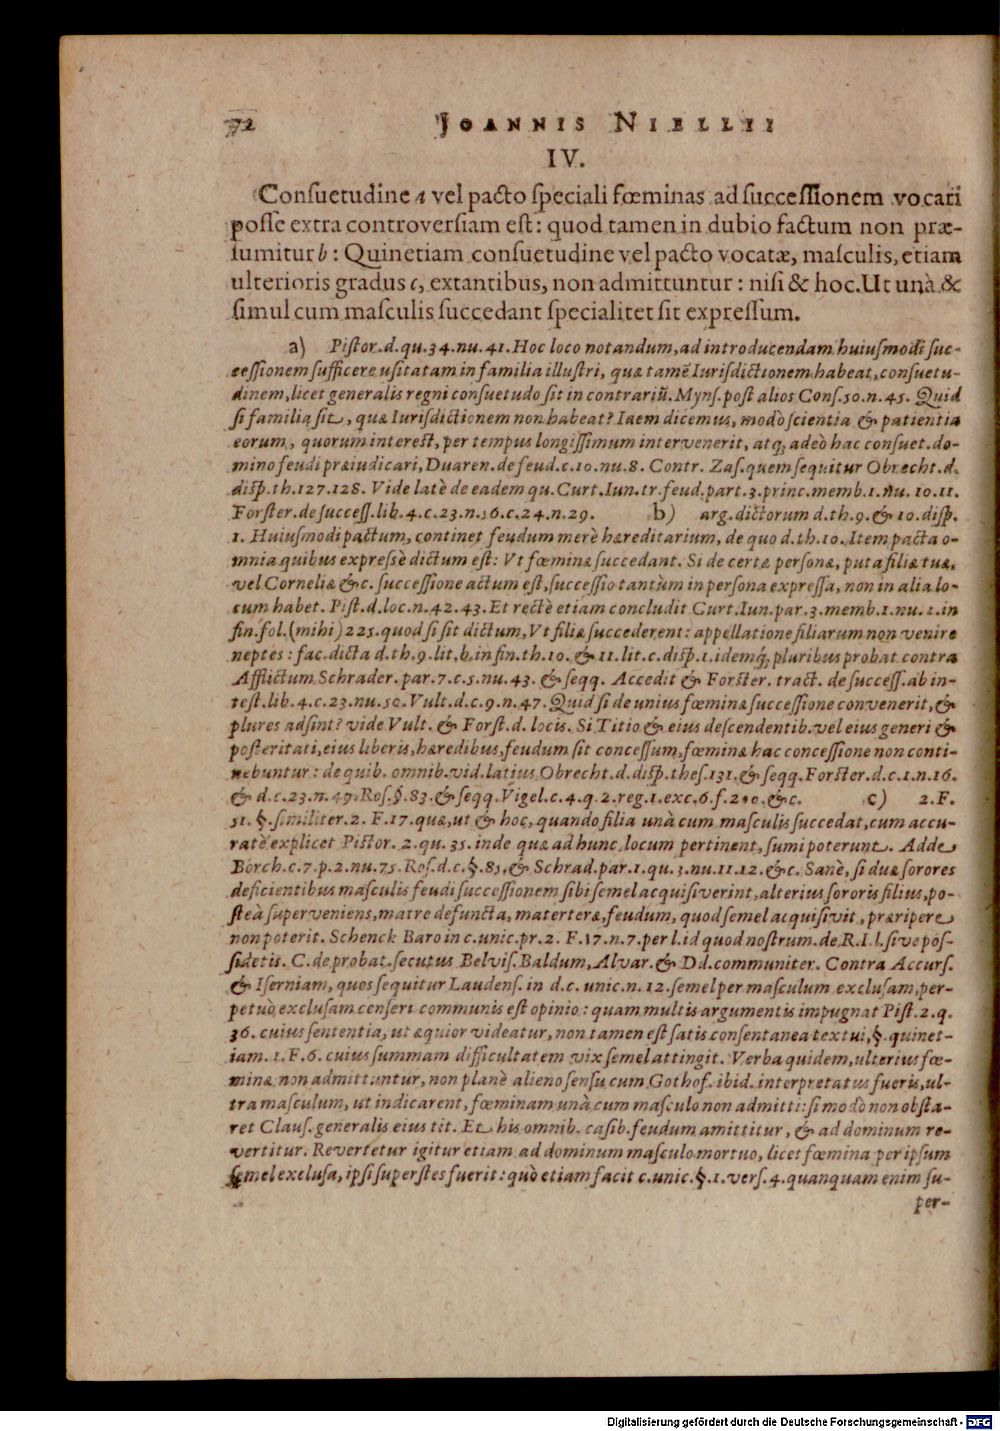 72 JOANNIS NIELLII
IV.
Conſuetudine a vel pacto ſpeciali fœminas ad ſucceſſionem vocari
poſſe extra controverſiam eſt: quod tamen in dubio factum non præ-
ſumitur b: Quinetiam conſuetudine vel pacto vocatæ, maſculis, etiam
ulterioris gradus c, extantibus, non admittuntur: niſi & hoc. Ut unà &
ſimul cum maſculis ſuccedant ſpecialitet ſit expreſſum.
a) Piſtor. d. qu. 34. nu. 41. Hoc loco notandum, ad introducendam huiuſmodi ſuc-
ceſſionem ſufficere uſitatam in familia illuſtri, quæ tamē Iurisdictionem habeat, conſuetu-
dinem, licet generalis regni conſuetudo ſit in contrariū. Mynſ. poſt alios Conſ. 50. n. 45. Quid
ſi familia ſit, quæ Iurisdictionem non habeat? Iaem dicemus, modò ſcientia & patientia
eorum, quorum intereſt, per tempus longiſſimum intervenerit, atq; adeò hac conſuet. do-
mino feudi præiudicari, Duaren. de feud. c. 10. nu. 8. Contr. Zaſ. quem ſequitur Obrecht. d.
diſp. th. 127. 128. Vide latè de eadem qu. Curt. Iun. tr. feud. part. 3. princ. memb. 1. nu. 10. 11.
Forſter. de ſucceſſ. lib. 4. c. 23. n. 16. c. 24. n. 29. b) arg. dictorum d. th. 9. & 10. diſp.
1. Huiuſmodi pactum, continet feudum merè hæreditarium, de quo d. th. 10. Item pacta o-
mnia quibus expreſſè dictum eſt: Vt fœminæ ſuccedant. Si de certæ perſonæ, puta filiæ tuæ,
vel Corneliæ &c. ſucceſſione actum eſt, ſucceſſio tantùm in perſona expreſſa, non in alia lo-
cum habet. Piſt. d. loc. n. 42. 43. Et rectè etiam concludit Curt. Iun. par. 3. memb. 1. nu. 1. in
fin. fol. (mihi) 225. quod ſi ſit dictum, Vt filiæ ſuccederent: appellatione filiarum non venire
neptes: fac. dicta d. th. 9. lit. b. in fin. th. 10. & 11. lit. c. diſp. 1. idemq́; pluribus probat contra
Afflictum Schrader. par. 7. c. 5. nu. 43. & ſeqq. Accedit & Forſter. tract. de ſucceſſ. ab in-
teſt. lib. 4. c. 23. nu. 50. Vult. d. c. 9. n. 47. Quid ſi de unius fœminæ ſucceſſione convenerit, &
plures adſint? vide Vult. & Forſt. d. locis. Si Titio & eius deſcendentib. vel eius generi &
poſteritati, eius liberis, hæredibus, feudum ſit conceſſum, fœminæ hac conceſſione non conti-
nebuntur: de quib. omnib. vid. latius Obrecht. d. diſp. theſ. 131. & ſeqq. Forſter. d. c. 1. n. 16.
& d. c. 23. n. 49. Roſ. §. 83. & ſeqq. Vigel. c. 4. q. 2. reg. 1. exc. 6. f. 210. &c. c) 2. F.
51. §. ſimiliter. 2. F. 17. quæ, ut & hoc, quando filia unà cum maſculis ſuccedat, cum accu-
ratè explicet Piſtor. 2. qu. 35. inde quæ ad hunc locum pertinent, ſumi poterunt. Adde
Borch. c. 7. p. 2. nu. 75. Roſ. d. c. §. 85, & Schrad. par. 1. qu. 3. nu. 11. 12. &c. Sanè, ſi duæ ſorores
deficientibus maſculis feudi ſucceſſionem ſibi ſemel acquiſiverint, alterius ſororis filius, po-
ſteà ſuperveniens, matre defuncta, materteræ, feudum, quod ſemel acquiſivit, præripere
non poterit. Schenck Baro in c. unic. pr. 2. F. 17. n. 7. per l. id quod noſtrum. de R. I. l. ſive poſ-
ſidetis. C. de probat. ſecutus Belviſ. Baldum, Alvar. & Dd. communiter. Contra Accurſ.
& Iſerniam, quos ſequitur Laudenſ. in d. c. unic. n. 12. ſemel per maſculum excluſam, per-
petuò excluſam cenſeri communis eſt opinio: quam multis argumentis impugnat Piſt. 2. q.
36. cuius ſententia, ut æquior videatur, non tamen eſt ſatis conſentanea textui, §. quinet-
iam. 1. F. 6. cuius ſummam difficultatem vix ſemel attingit. Verba quidem, ulterius fœ-
minæ non admittuntur, non planè alieno ſenſu cum Gothof. ibid. interpretatus fueris, ul-
tra maſculum, ut indicarent, fœminam unà cum maſculo non admitti: ſi modò non obſta-
ret Clauſ. generalis eius tit. Et his omnib. caſib. feudum amittitur, & ad dominum re-
vertitur. Revertetur igitur etiam ad dominum maſculo mortuo, licet fœmina per ipſum
ſemel excluſa, ipſi ſuperſtes fuerit: quò etiam facit c. unic. §. 1. verſ. 4. quanquam enim ſu-
per-
Digitalisierung gefördert durch die Deutsche Forschungsgemeinschaft - DFG